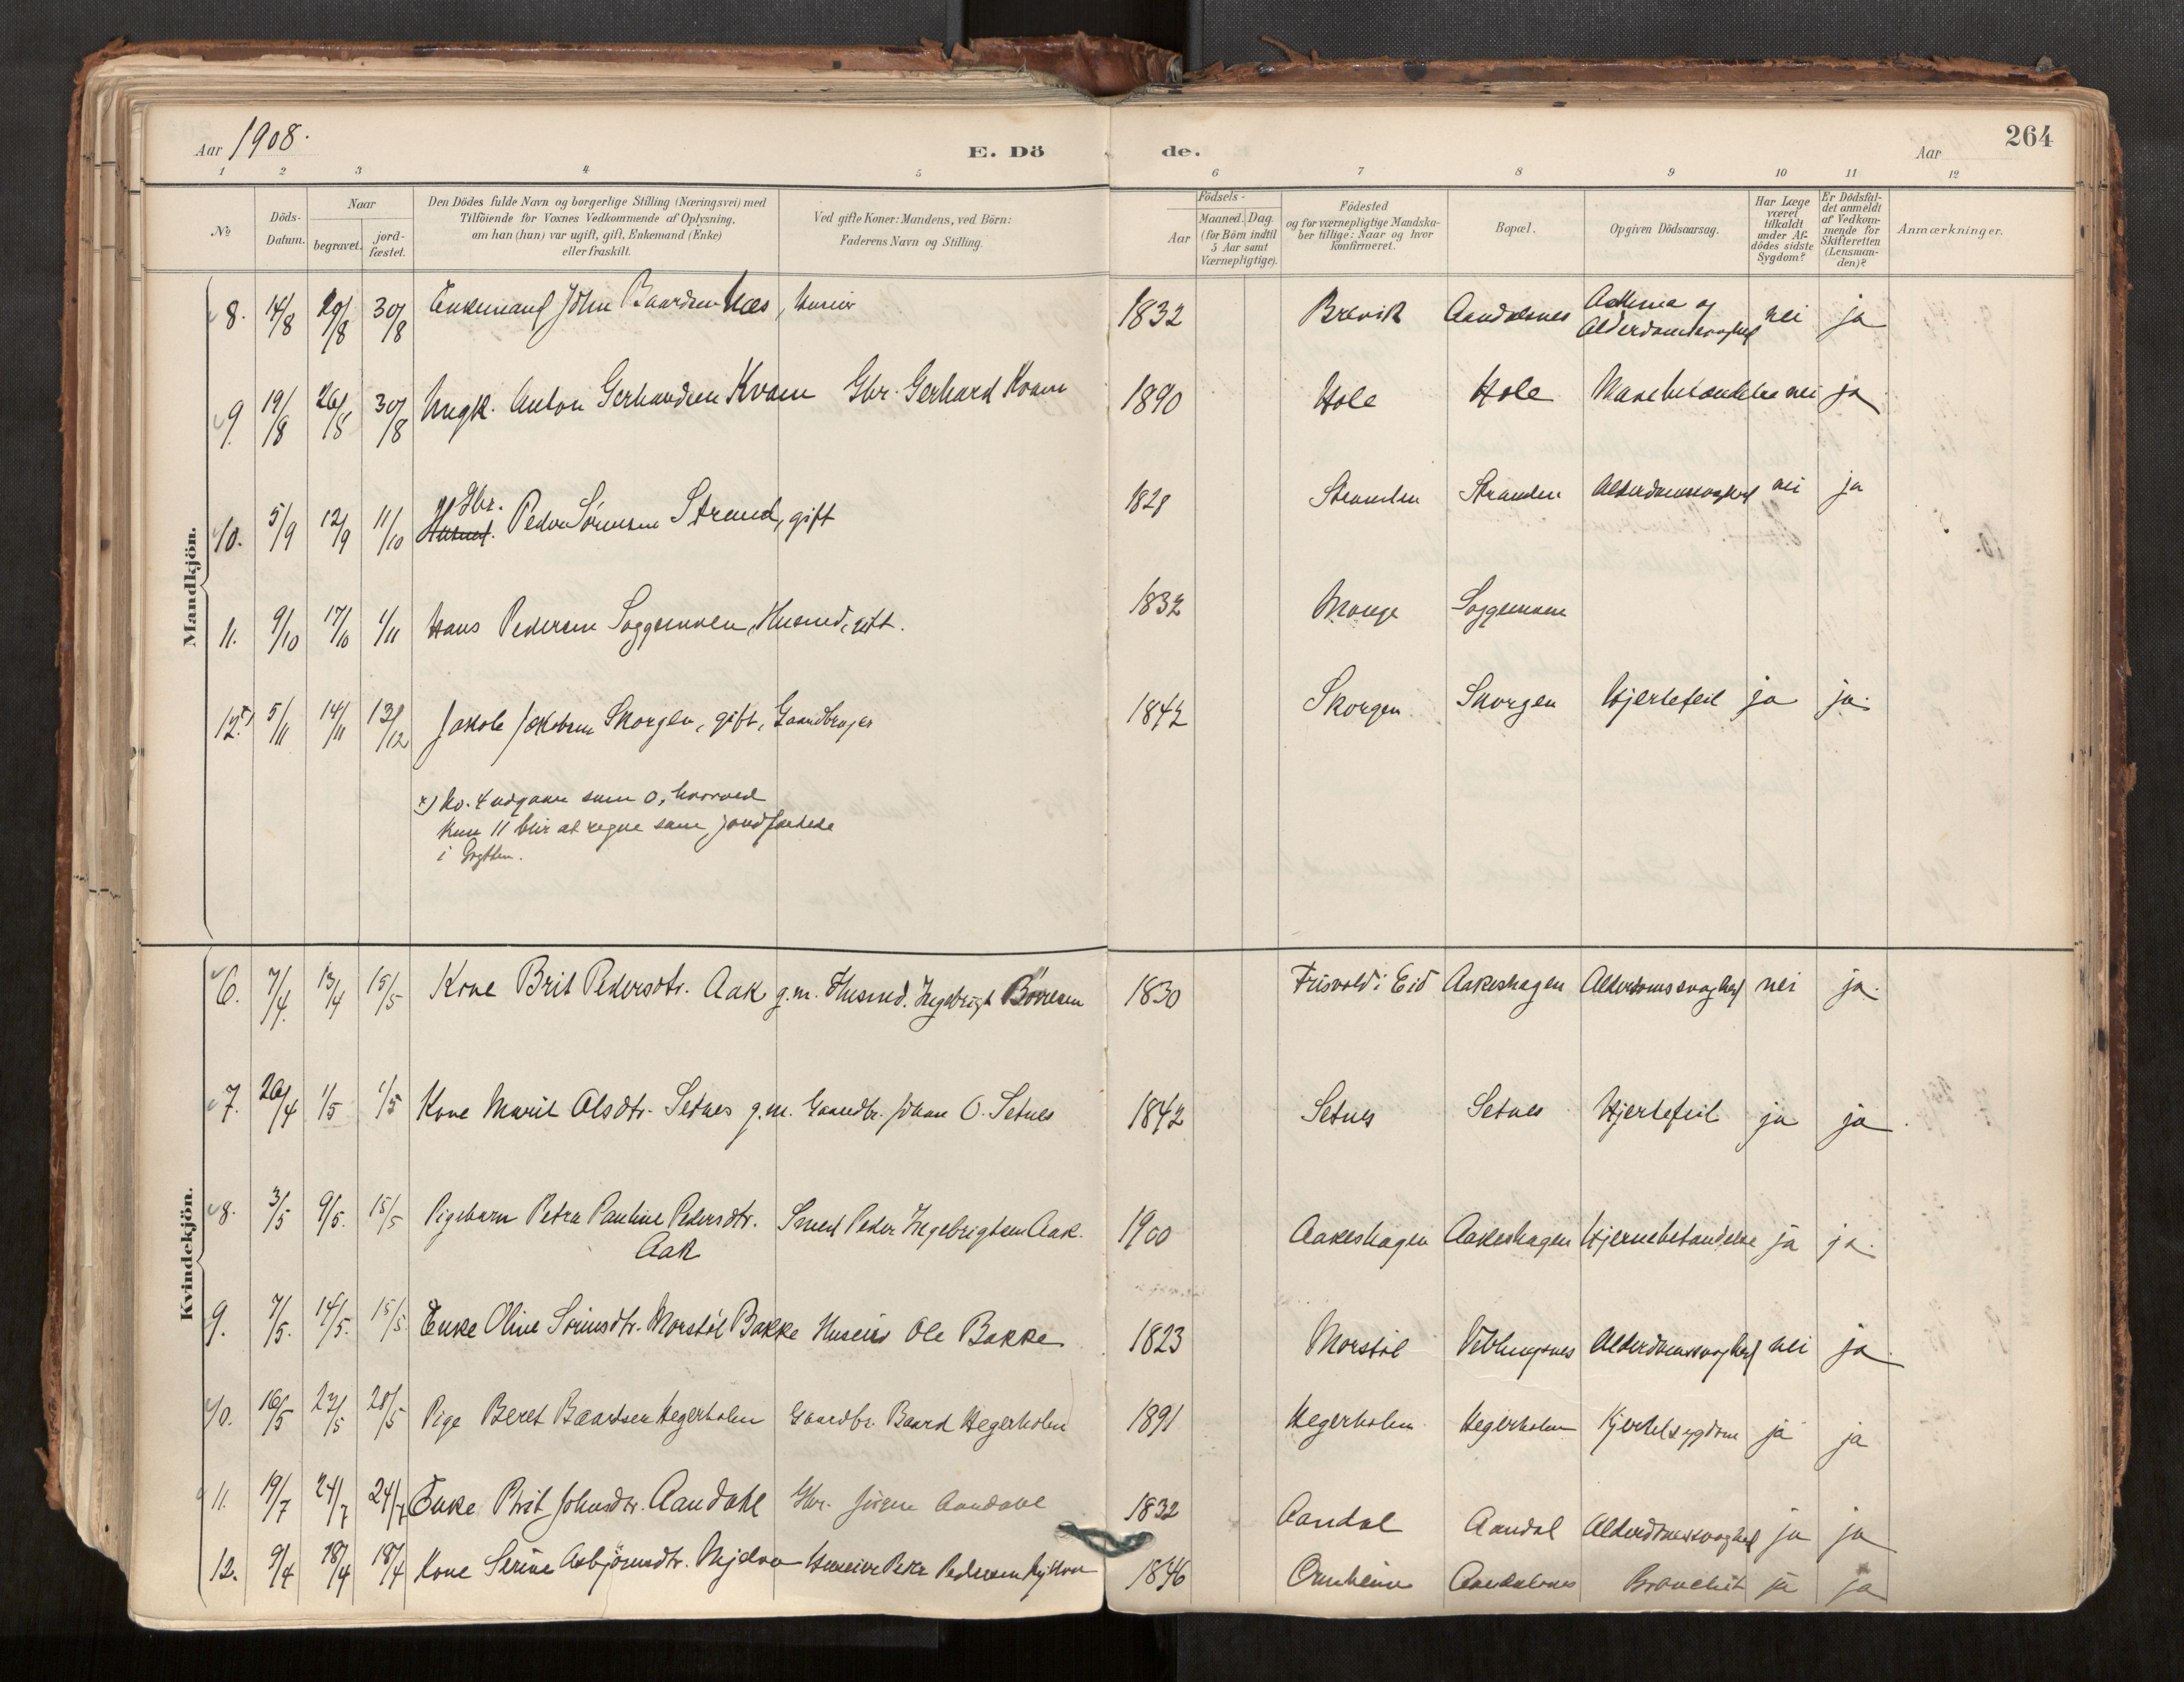 Aar 1908.
E. Döde.
Aar
264
1 2 3 4 5 6 7 8 9 10 11 12
No
Döds-Datum.
Naar begravet. jordfæstet.
Den Dödes fulde Navn og borgerlige Stilling (Næringsvei) med
Tilföiende for Voxnes Vedkommende af Oplysning,
om han (hun) var ugift, gift, Enkemand (Enke)
eller fraskilt.
Ved gifte Koner: Mandens, ved Börn:
Faderens Navn og Stilling.
Födsels-
Aar
Maaned. Dag.
(for Börn indtil
5 Aar samt
Værnepligtige).
Födested
og for værnepligtige Mandska-
ber tillige: Naar og hvor
konfirmeret.
Bopæl.
Opgiven Dödsaarsag.
Har Læge
været
tilkaldt
under Af-
dödes sidste
Sygdom?
Er Dödsfal-
det anmeldt
af Vedkom-
mende for
Skifteretten
(Lensman-
den)?
Anmærkninger.
Mandkjön.
8. 14/8 29/8 30/8 Enkemand John Baardsen Næs, Huseier 1832 Brevik Aandalsnes Asthma og Alderdomssvaghed nei ja
9. 19/8 26/8 30/8 Ungk. Anton Gerhardsen Kvam Gbr. Gerhard Kvam 1890 Hole Hole Mavebetændelse nei ja
10. 5/9 12/9 11/10 Gbr. Husmd. Peder Sørensen Strand, gift 1828 Stranden Stranden Alderdomssvaghed nei ja
11. 9/10 17/10 1/11 Hans Pedersen Soggemoen, Husmd, gift. 1832 Monge Soggemoen
12. x) 5/11 14/11 13/12 Jakob Jakobsen Skorgen, gift, Gaardbruger 1842 Skorgen Skorgen Hjertefeil ja ja.
x) No. 4 udgaar som 0, hvorved
kun 11 blir at regne som jordfæstede
i Grytten.
Kvindekjön.
6. 7/4. 13/4 15/5 Kone Brit Pedersdtr. Aak g.m. Husmd. Ingebrigt Börresen 1830 Frisvold i Eid Aakeshagen Alderdomssvaghed nei ja.
7. 26/4 1/5 1/5 Kone Marit Olsdtr. Setnes g.m. Gaardbr. Johan O. Setnes 1842 Setnes Setnes Hjertefeil ja ja.
8. 3/5 9/5. 15/5 Pigebarn Petra Pauline Pedersdtr. Aak Smed Peder Ingebrigtsen Aak. 1900 Aakeshagen Aakeshagen Hjernebetændelse ja ja.
9. 7/5. 14/5. 15/5 Enke Oline Sørensdtr. Morstøl Bakke Huseier Ole Bakke 1823 Morstøl Veblungsnes Alderdomssvaghed nei ja.
10. 16/5 23/5 28/5 Pige Beret Baardsen Hegerholm Gaardbr. Baard Hegerholm 1891 Hegerholm Hegerholm Kjertelsygdom ja ja
11. 19/7 24/7 24/7 Enke Brit Johnsdtr. Aandahl Gbr. Aandahl 1832 Aandal Aandal Alderdomssvaghed ja ja
12. 9/4 18/4 18/4 Kone Serine Asbjørnsdtr. Mjelva Huseier Peder Pedersen 1846 Ornheim Aandalsnes Bronchit ja ja